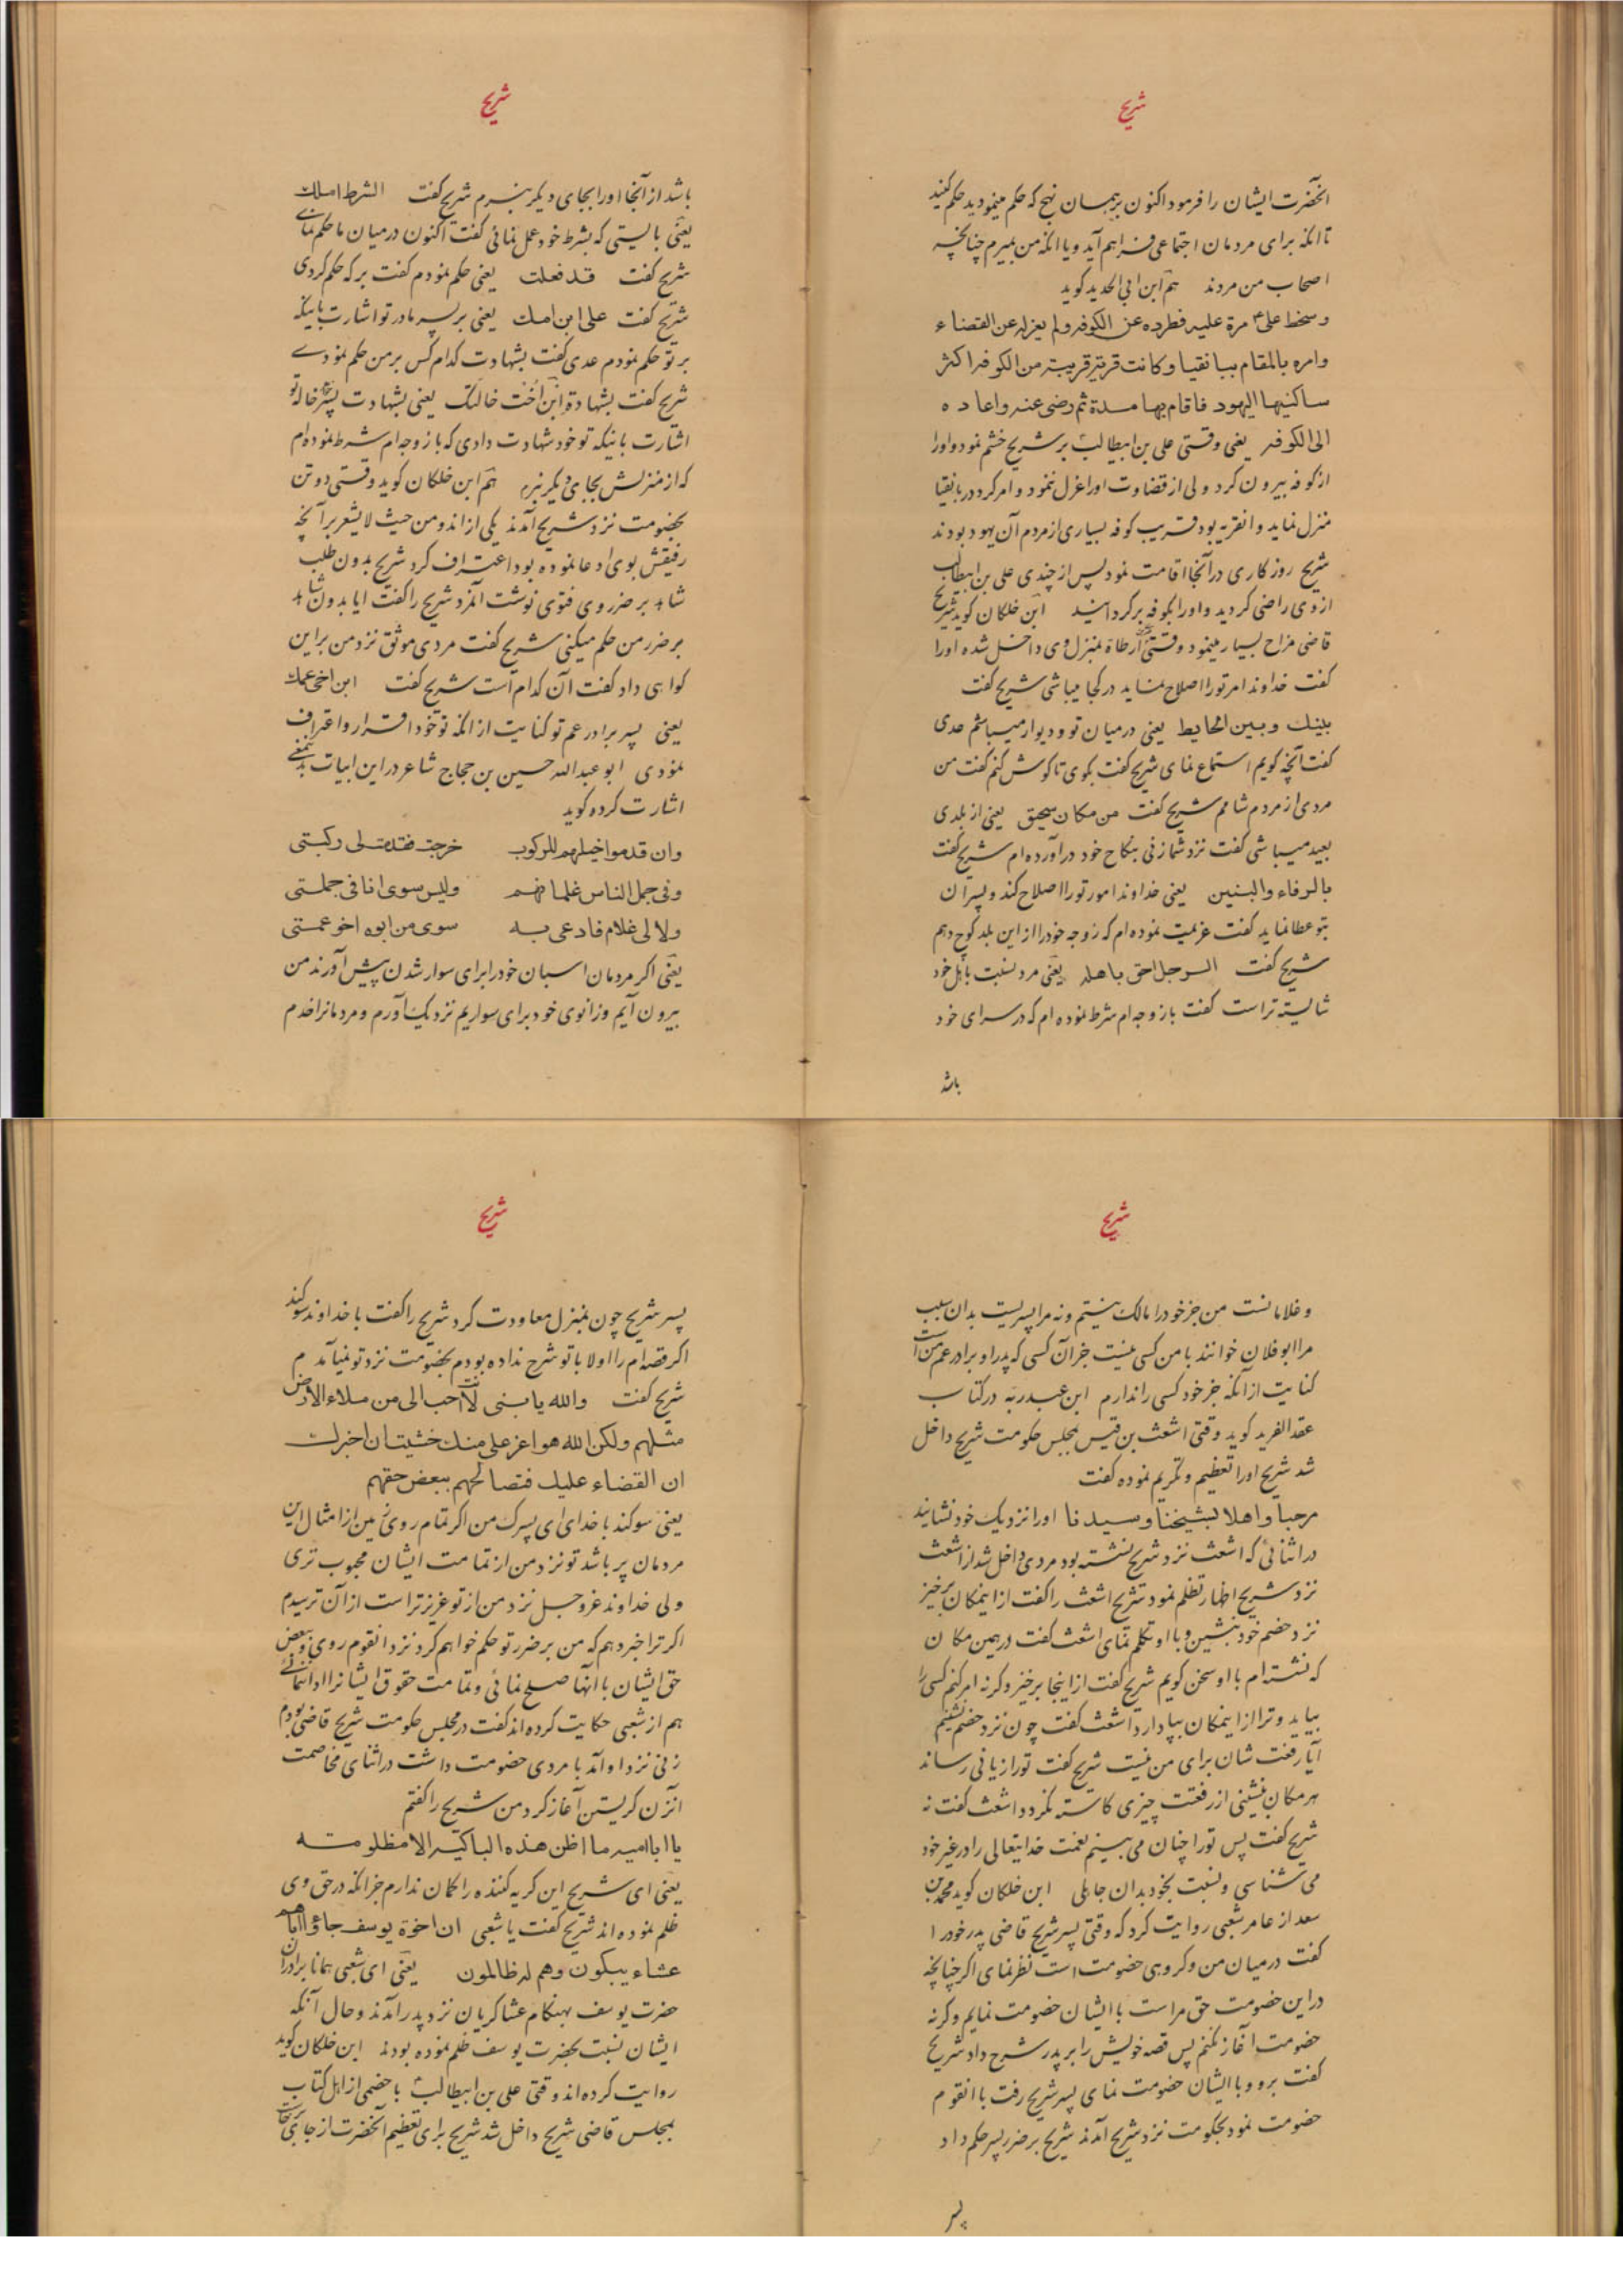 شریح
آنحضرت ایشان را فرمود اکنون بر همان نهج که حکم مینمودید حکم کنید
تا آنکه برای مردمان اجتماعی فراهم آید و یا آنکه من بمیرم چنانچه
اصحاب من مردند هم ابن ابی الحدید کوید
و سخط علیّ مرة علیه فطرده عن الکوفه ولم یعزله عن القضاء
وامره بالمقام ببانقیا وکانت قریة قریبة من الکوفه اکثر
ساکنیها الیهود فاقام بها مدة ثم رضی عنه واعاده
الی الکوفه یعنی وقتی علی بن ابیطالب بر شریح خشم نمود و اورا
از کوفه بیرون کرد ولی از قضاوت اورا عزل ننمود و امر کرد در بانقیا
منزل نماید و انقریه بود قریب کوفه بسیاری از مردم آن یهود بودند
شریح روزکاری در آنجا اقامت نمود پس از چندی علی بن ابیطالب
از وی راضی کردید و اورا بکوفه برکردانید ابن خلکان کوید شریح
قاضی مزاح بسیار مینمود وقتی ارطاة بمنزل وی داخل شده اورا
کفت خداوند امر تورا اصلاح نماید در کجا میباشی شریح کفت
بینک وبین الحایط یعنی در میان تو و دیوار میباشم عدی
کفت آنچه کویم استماع نمای شریح کفت بکوی تا کوش کنم کفت من
مردی از مردم شامم شریح کفت من مکان سحیق یعنی از بلدی
بعید میباشی کفت نزد شما زنی بنکاح خود درآورده ام شریح کفت
بالرفاء والبنین یعنی خداوند امور تورا اصلاح کند و پسران
بتو عطا نماید کفت عزیمت نموده ام که زوجه خود را از این بلد کوچ دهم
شریح کفت الرجل احق باهله یعنی مرد نسبت باهل خود
شایسته تر است کفت با زوجه ام شرط نموده ام که در سرای خود
باشد
شریح
باشد از آنجا اورا بجای دیکر نبرم شریح کفت الشرط املک
یعنی بایستی که بشرط خود عمل نمائی کفت اکنون در میان ما حکم نمای
شریح کفت قد فعلت یعنی حکم نمودم کفت بر که حکم کردی
شریح کفت علی ابن امک یعنی بر پسر مادر تو اشارت باینکه
بر تو حکم نمودم عدی کفت بشهادت کدام کس بر من حکم نمودے
شریح کفت بشهادة ابن اخت خالتک یعنی بشهادت پسر خاله تو
اشارت باینکه تو خود شهادت دادی که با زوجه ام شرط نموده ام
که از منزلش بجای دیکر نبرم هم ابن خلکان کوید وقتی دو تن
بخصومت نزد شریح آمدند یکی از اندو من حیث لا یشعر بر آنچه
رفیقش بوی ادعا نموده بود اعتراف کرد شریح بدون طلب
شاهد بر ضرر وی فتوی نوشت آنمرد شریح را کفت ایا بدون شاهد
بر ضرر من حکم میکنی شریح کفت مردی موثق نزد من بر این
کواهی داد کفت آن کدام است شریح کفت ابن اخی عمک
یعنی پسر برادر عم تو کنایت از آنکه تو خود اقرار و اعتراف
نمودی ابو عبدالله حسین بن حجاج شاعر در این ابیات بدینمعنی
اشارت کرده کوید
وان قدموا خیلهم للرکوب خرجت فقدمت لی رکبتی
وفی جمل الناس غلمانهم ولیس سوی انا فی جملتی
ولا لی غلام فادعی به سوی من ابوه اخو عمتی
یعنی اکر مردمان اسبان خود را برای سوار شدن پیش آورند من
بیرون آیم و زانوی خود برای سواریم نزدیک آورم و مردمانرا خدم
شریح
و غلامانست من جز خود را مالک نیستم و نه مرا پسریست بدان سبب
مرا ابو فلان خوانند با من کسی نیست جز آن کسی که پدر او برادر عم من است
کنایت از آنکه جز خود کسی را ندارم ابن عبد ربه در کتاب
عقد الفرید کوید وقتی اشعث بن قیس بمجلس حکومت شریح داخل
شد شریح اورا تعظیم و تکریم نموده کفت
مرحبا واهلا بشیخنا وسیدنا اورا نزدیک خود نشانید
در اثنائی که اشعث نزد شریح نشسته بود مردی داخل شد از اشعث
نزد شریح اظهار تظلم نمود شریح اشعث را کفت از اینمکان برخیز
نزد خصم خود بنشین و با او تکلم نمای اشعث کفت در همین مکان
که نشسته ام با او سخن کویم شریح کفت از اینجا برخیز و کرنه امر کنم کسی را
بیاید و ترا از اینمکان بپا دارد اشعث کفت چون نزد خصم نشینم
آیا رفعت شان برای من نیست شریح کفت تورا زیانی رساند
هر مکان بنشینی از رفعتت چیزی کاسته نکردد اشعث کفت نه
شریح کفت پس تورا چنان می بینم نعمت خدایتعالی را در غیر خود
می شناسی و نسبت بخود بدان جاهلی ابن خلکان کوید محمد بن
سعد از عامر شعبی روایت کرد که وقتی پسر شریح قاضی پدر خود را
کفت در میان من و کروهی خصومت است نظر نمای اکر چنانچه
در این خصومت حق مراست با ایشان خصومت نمایم و کرنه
خصومت آغاز نکنم پس قصه خویش را بر پدر شرح داد شریح
کفت برو و با ایشان خصومت نمای پسر شریح رفت با انقوم
خصومت نمود بحکومت نزد شریح آمدند شریح بر ضرر پسر حکم داد
پسر
شریح
پسر شریح چون بمنزل معاودت کرد شریح را کفت با خداوند سوکند
اکر قصه ام را اولا با تو شرح نداده بودم بخصومت نزد تو نمیآمدم
شریح کفت والله یا بنی لانت احب الی من ملاء الارض
مثلهم ولکن الله هو اعز علی منک خشیت ان اخبرک
ان القضاء علیک فتصالحهم ببعض حقهم
یعنی سوکند با خدای ای پسرک من اکر تمام روی زمین از امثال این
مردمان پر باشد تو نزد من از تمامت ایشان محبوب تری
ولی خداوند عزوجل نزد من از تو عزیزتر است از آن ترسیدم
اکر ترا خبر دهم که من بر ضرر تو حکم خواهم کرد نزد انقوم روی و ببعض
حق ایشان با آنها صلح نمائی و تمامت حقوق ایشانرا ادا ننمائی
هم از شعبی حکایت کرده اند کفت در مجلس حکومت شریح قاضی بودم
زنی نزد او آمد با مردی خصومت داشت در اثنای مخاصمت
انزن کریستن آغاز کرد من شریح را کفتم
یا ابا امیه ما اظن هذه الباکیة الا مظلومة
یعنی ای شریح این کریه کننده را کمان ندارم جز آنکه در حق وی
ظلم نموده اند شریح کفت یا شعبی ان اخوة یوسف جاؤا اباهم
عشاء یبکون وهم له ظالمون یعنی ای شعبی همانا برادران
حضرت یوسف بهنکام عشا کریان نزد پدر آمدند و حال آنکه
ایشان نسبت بحضرت یوسف ظلم نموده بودند ابن خلکان کوید
روایت کرده اند وقتی علی بن ابیطالب با خصمی از اهل کتاب
بمجلس قاضی شریح داخل شد شریح برای تعظیم آنحضرت از جای